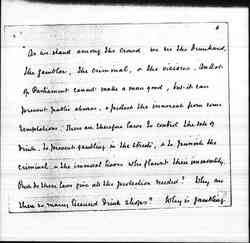 "As we stand among the crowd we see the Drunkard,
the gambler, the criminal, & the vicious. An Act
of Parliament cannot make a man good, but it can
prevent public abuses, & protect the innocent from some
temptations. There are therefore laws to control the sale of
Drink, to prevent gambling in the streets, & to punish the
criminal & the immoral lives who flaunt their immorality.
But do these laws give all the protection needed? Why are
there so many licensed Drink shops? Why is gambling